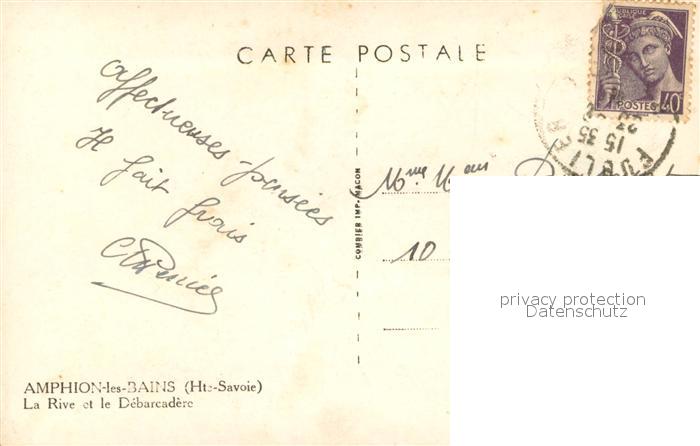 CARTE POSTALE
RÉPUBLIQUE
FRANÇAISE
POSTES
40
15 35
Affectueuses pensées
Il fait frais
Mme
10
COMBIER IMP. MACON
privacy protection
Datenschutz
AMPHION-les-BAINS (Hte-Savoie)
La Rive et le Débarcadère